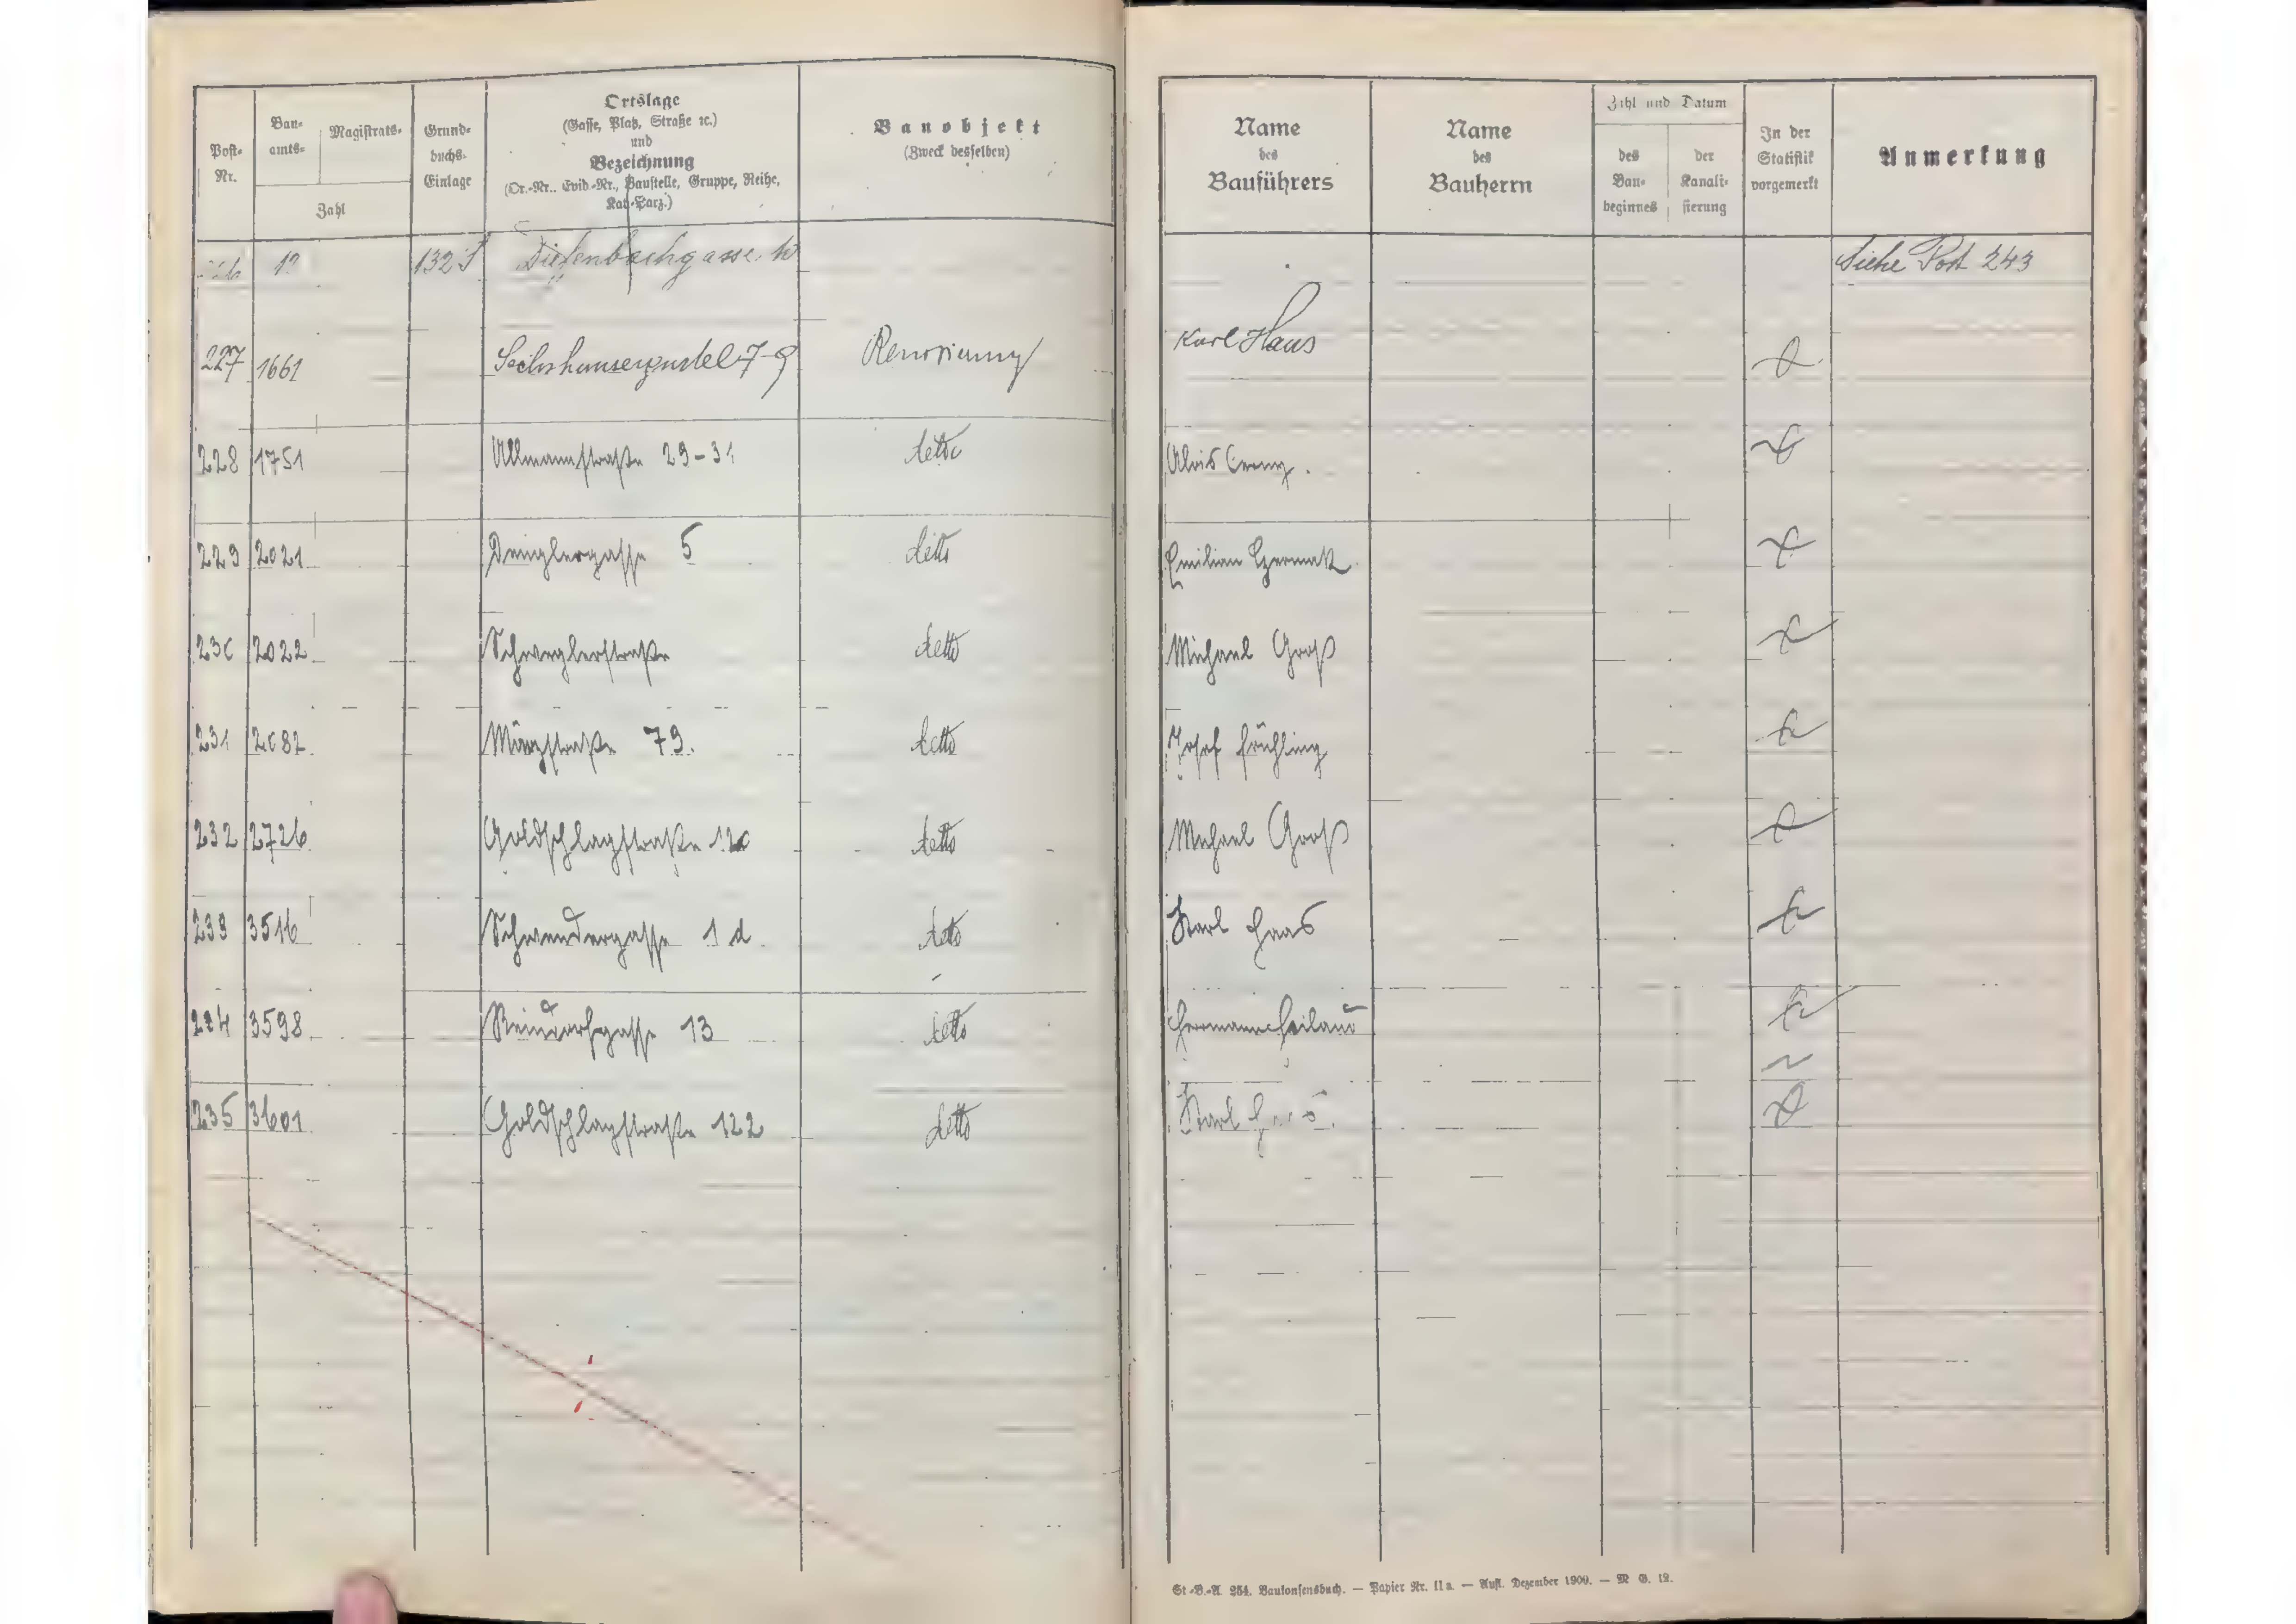 Post-Nr. Bau-amts- Magistrats- Zahl Grund-buchs-Einlage Ortslage (Gasse, Platz, Straße ꝛc.) und Bezeichnung (Or.-Nr., Evid.-Nr., Baustelle, Gruppe, Reihe, Kat.-Parz.) Bauobjekt (Zweck desselben) Name des Bauführers Name des Bauherrn Zahl und Datum des Bau-beginnes der Kanali-sierung In der Statistik vorgemerkt Anmerkung
1325 Diefenbachgasse 10 Siehe Post 243
227 1661 Sechshausergürtel 7-9 Renovierung Karl Haas
228 1751 Ullmannstraße 29-31 detto Alois Cerny.
229 2021 Denglergasse 5 detto Emilian Czermak
230 2022 Schweglerstraße detto Michael Groß
231 2082 Märzstraße 79. detto Josef Frühling
232 2726 Goldschlagstraße detto Michael Groß
233 3516 Schwendergasse 1 d. detto Karl Haas
234 3598 Reindorfgasse 13 detto Hermann Heiland
235 3601 Goldschlagstraße 122 detto Karl
St.-B.-A. 254. Baukonsensbuch. — Papier Nr. II a. — Aufl. Dezember 1909. — M. G. 12.